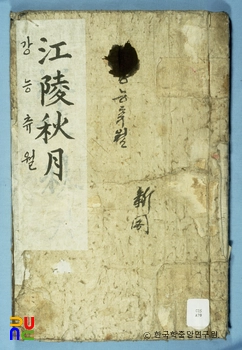 江陵秋月
강능츄월
강능츄월
新聞
ⓒ한국학중앙연구원